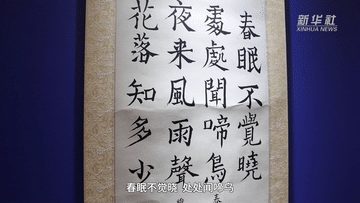 新华社
XINHUA NEWS
春眠不覺曉
處處聞啼鳥
夜来風雨聲
花落知多少
春
春眠不觉晓 处处闻啼鸟